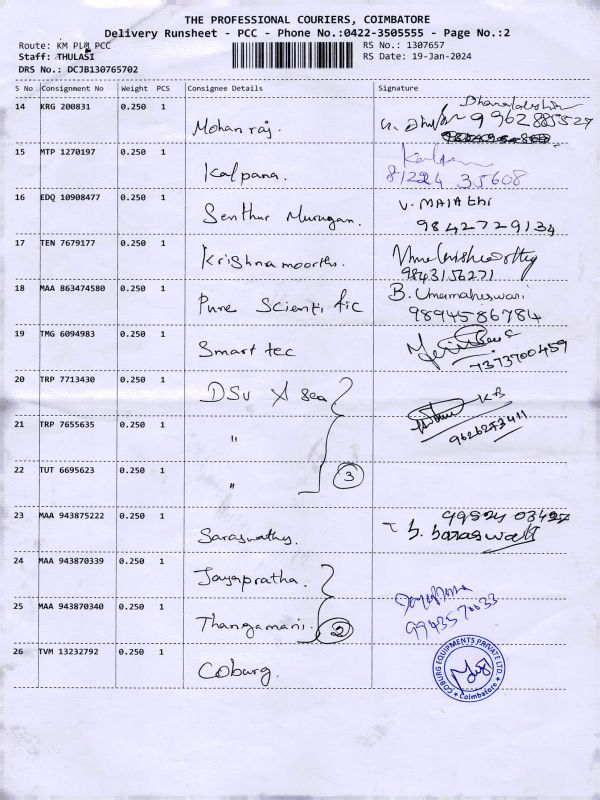 THE PROFESSIONAL COURIERS, COIMBATORE
Delivery Runsheet - PCC - Phone No.:0422-3505555 - Page No.:2
Route: KM PLM PCC
RS No.: 1307657
Staff: THULASI
RS Date: 19-Jan-2024
DRS No.: DCJB130765702
S No Consignment No Weight PCS Consignee Details Signature
14 KRG 200831 0.250 1
Mohanraj. 9962885527
15 MTP 1270197 0.250 1
Kalpana. 81224 35608
16 EDQ 10908477 0.250 1 V. MALATHI
Senthur Murugan. 9842729134
17 TEN 7679177 0.250 1
Krishnamoorths. 9843156271
18 MAA 863474580 0.250 1 B. Umamaheswari
Pure Scientific 9894586784
19 TMG 6094983 0.250 1
Smart tec 7373700459
20 TRP 7713430 0.250 1
DSV Air sea K.B
21 TRP 7655635 0.250 1
" 9626273411
22 TUT 6695623 0.250 1
" 3
23 MAA 943875222 0.250 1 99524 03427
Saraswathy. S. Saraswati
24 MAA 943870339 0.250 1
Jayapratha.
25 MAA 943870340 0.250 1
Thangamani. 2 9943570033
26 TVM 13232792 0.250 1
Coburg.
COBURG EQUIPMENTS PRIVATE LTD.
Coimbatore